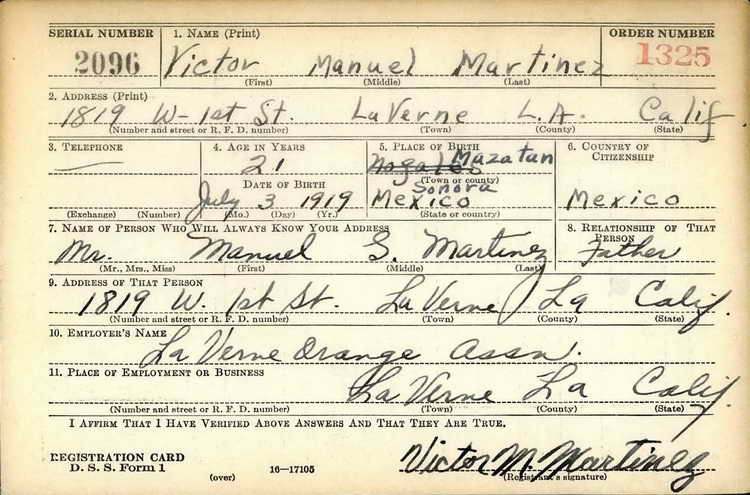 SERIAL NUMBER 1. NAME (Print) ORDER NUMBER
2096 Victor Manuel Martinez 1325
(First) (Middle) (Last)
2. ADDRESS (Print)
1819 W-1st St. LaVerne L.A. Calif
(Number and street or R. F. D. number) (Town) (County) (State)
3. TELEPHONE 4. AGE IN YEARS 5. PLACE OF BIRTH 6. COUNTRY OF CITIZENSHIP
— 21 Nogales Mazatan
(Town or county)
DATE OF BIRTH Sonora
July 3 1919 Mexico Mexico
(Exchange) (Number) (Mo.) (Day) (Yr.) (State or country)
7. NAME OF PERSON WHO WILL ALWAYS KNOW YOUR ADDRESS 8. RELATIONSHIP OF THAT PERSON
Mr. Manuel S. Martinez Father
(Mr., Mrs., Miss) (First) (Middle) (Last)
9. ADDRESS OF THAT PERSON
1819 W. 1st St. La Verne La Calif.
(Number and street or R. F. D. number) (Town) (County) (State)
10. EMPLOYER'S NAME
La Verne Orange Assn.
11. PLACE OF EMPLOYMENT OR BUSINESS
La Verne La Calif.
(Number and street or R. F. D. number) (Town) (County) (State)
I AFFIRM THAT I HAVE VERIFIED ABOVE ANSWERS AND THAT THEY ARE TRUE.
REGISTRATION CARD
D. S. S. Form 1 (over) 16—17105 Victor M. Martinez
(Registrant's signature)